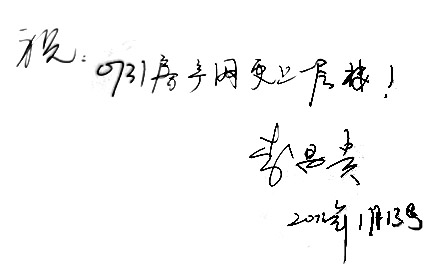 祝：
0731房产网更上层楼！
李昌贵
2012年1月13号